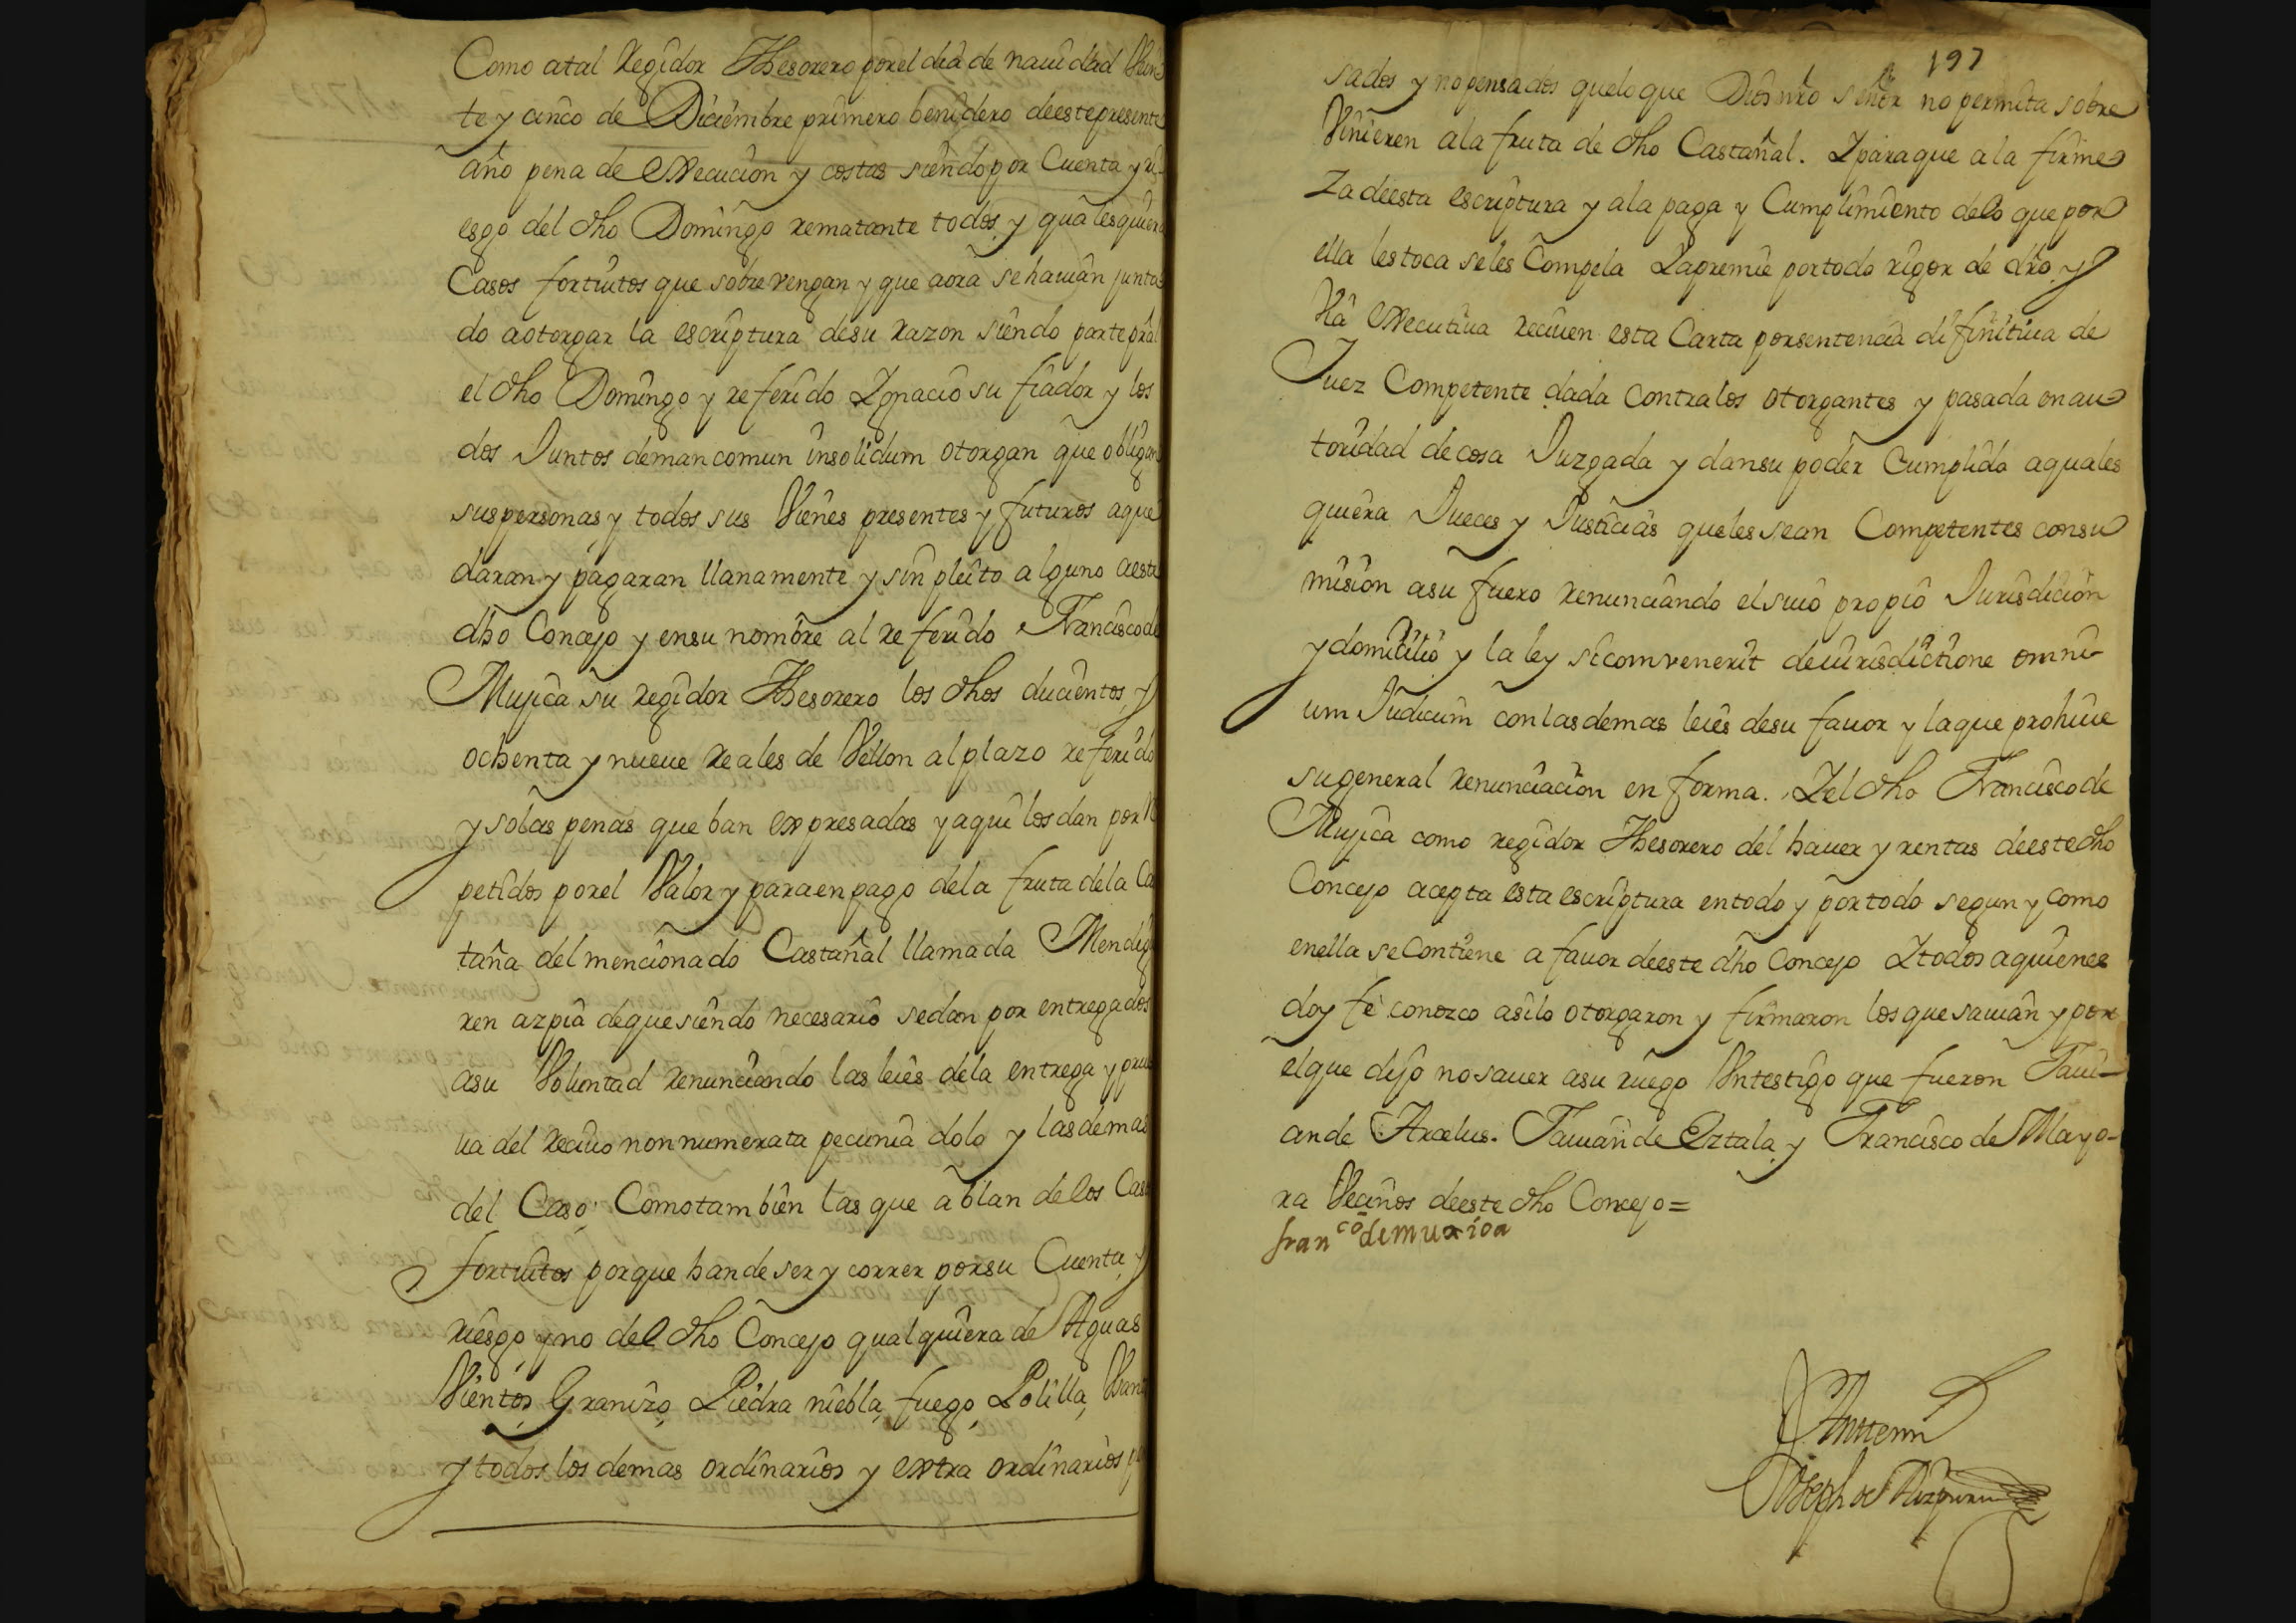 Como atal Regidor Thesorero por el dia de nauidad Vein
te y cinco de Diciembre primero benidero de este presente
año pena de execucion y costas siendo por Cuenta y ri
esgo del dho Domingo rematante todos y qualesquiera
Casos fortuitos que sobrevengan y que aora se hauian junta
do aotorgar la escriptura desu razon siendo parte pral
el dho Domingo y referido Ygnacio su fiador y los
dos Juntos demancomun insolidum otorgan que obligan
sus personas y todos sus Vienes presentes y futuros aque
daran y pagaran llanamente y sin pleito alguno aeste
dho Concejo y ensu nombre al referido Francisco de
Mujica su regidor Thesorero los dhos ducientos, y
ochenta y nueue Reales de Vellon al plazo referido
y solas penas que ban expresadas y aqui los dan por R
petidos por el Valor y para en pago dela fruta dela Ca
taña del mencionado Castañal llamada Mendigu
ren azpia deque siendo necesario sedan por entregados
asu Voluntad renunciando las leies dela entrega y prue
ua del reciuo non numerata pecunia dolo y las demas
del Caso. Como tambien las que ablan de los Casos
fortuitos porque hande ser y correr por su Cuenta, y
riesgo y no del dho Concejo qualquiera de Aguas
Vientos, Granizo, Piedra niebla, fuego, Polilla,
y todos los demas ordinarios y extra ordinarios p
197
sados y no pensados quelo que Dios nro señor no permita sobre
Vinieren ala fruta de dho Castañal. Y para que ala firme
Za deesta escriptura y ala paga y Cumplimiento delo que por
ella les toca seles Compela Yapremie por todo rigor de dro y
Via executiua reciuen esta Carta por sentencia difinitiua de
Juez Competente dada contra los otorgantes y pasada en au
toridad de cosa Juzgada y dan su poder Cumplido aquales
quiera Jueces y Justicias queles sean Competentes consu
mision asu fuero renunciando el suio propio Jurisdicion
y domicilio y la ley sicomvenerit deiurisdictione omni
um Judicum con las demas leies desu fauor y la que prohiue
su general renunciacion en forma. Y el dho Francisco de
Mujica como regidor Thesorero del hauer y rentas deeste dho
Concejo acepta esta escriptura en todo y por todo segun y como
enella se Contiene a fauor deeste dho Concejo Y todos aquienes
doy fe conozco asilo otorgaron y firmaron los que sauian y por
el que dijo no sauer asu ruego Vn testigo que fueron Taui-
an de Arcelus. Tauian de Oztala y Francisco de Mayo-
ra Vecinos deeste dho Concejo=
franco demuxica
Antemi
Joseph de Aizpuru